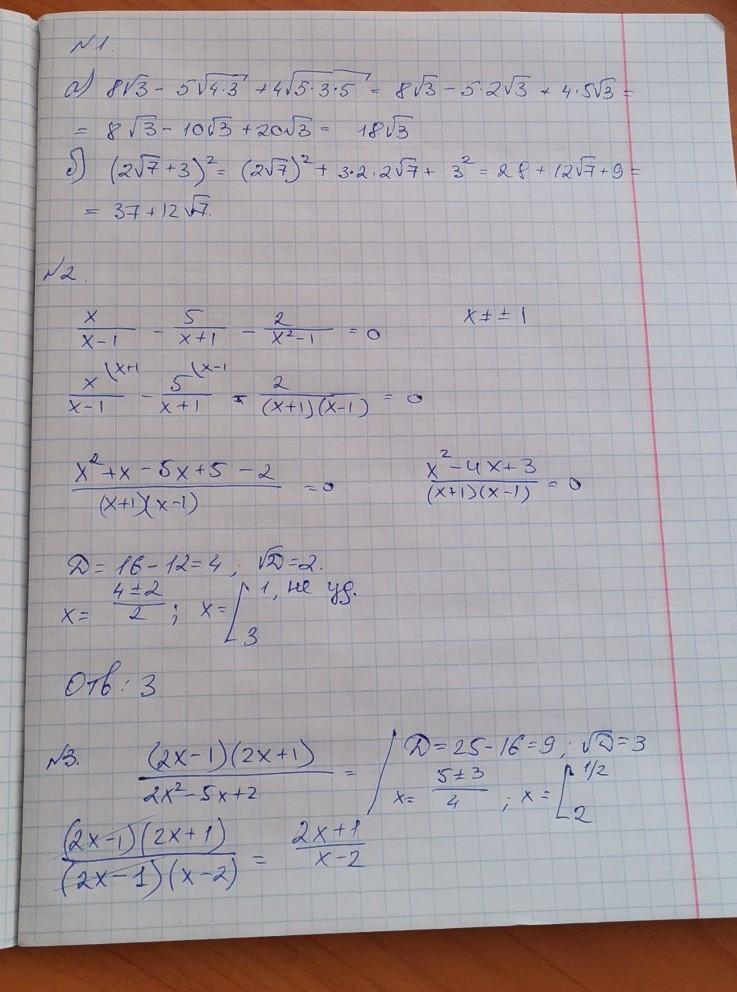 №1.
а) 8√3 - 5√4·3 + 4√5·3·5 = 8√3 - 5·2√3 + 4·5√3 =
= 8√3 - 10√3 + 20√3 = 18√3
б) (2√7 + 3)² = (2√7)² + 3·2·2√7 + 3² = 28 + 12√7 + 9 =
= 37 + 12√7.
№2.
x/(x-1) - 5/(x+1) - 2/(x²-1) = 0 x ≠ ±1
x\x+1/(x-1) - 5\x-1/(x+1) - 2/((x+1)(x-1)) = 0
(x²+x-5x+5-2)/((x+1)(x-1)) = 0 (x²-4x+3)/((x+1)(x-1)) = 0
D = 16-12 = 4; √D = 2.
x = (4±2)/2; x = [1, не уд.
3
Отв: 3
№3. ((2x-1)(2x+1))/(2x²-5x+2) = / D = 25-16 = 9; √D = 3
x = (5±3)/4; x = [1/2
2
((2x-1)(2x+1))/((2x-1)(x-2)) = (2x+1)/(x-2)